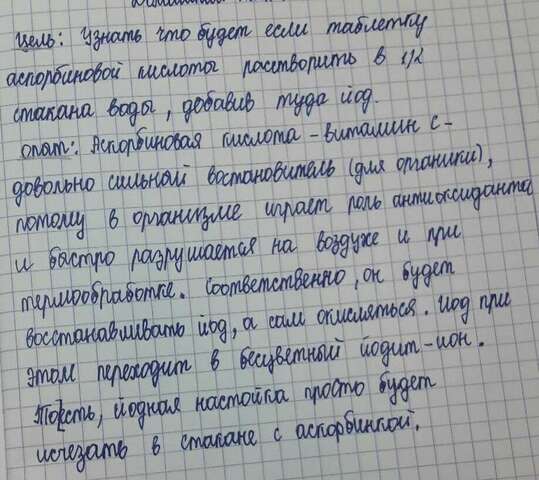 Цель: Узнать что будет если таблетку
аспорбиновой кислоты растворить в 1/2
стакана воды, добавив туда йод.
опыт: Аспорбиновая кислота – витамин с –
довольно сильный востановитель (для органики),
потому в организме играет роль антиоксиданта
и быстро разрушается на воздухе и при
термообработке. Соответственно, он будет
восстанавливать йод, а сам окисляться. Иод при
этом переходит в бесцветный йодит-ион.
То есть, йодная настойка просто будет
исчезать в стакане с аспорбинкой.